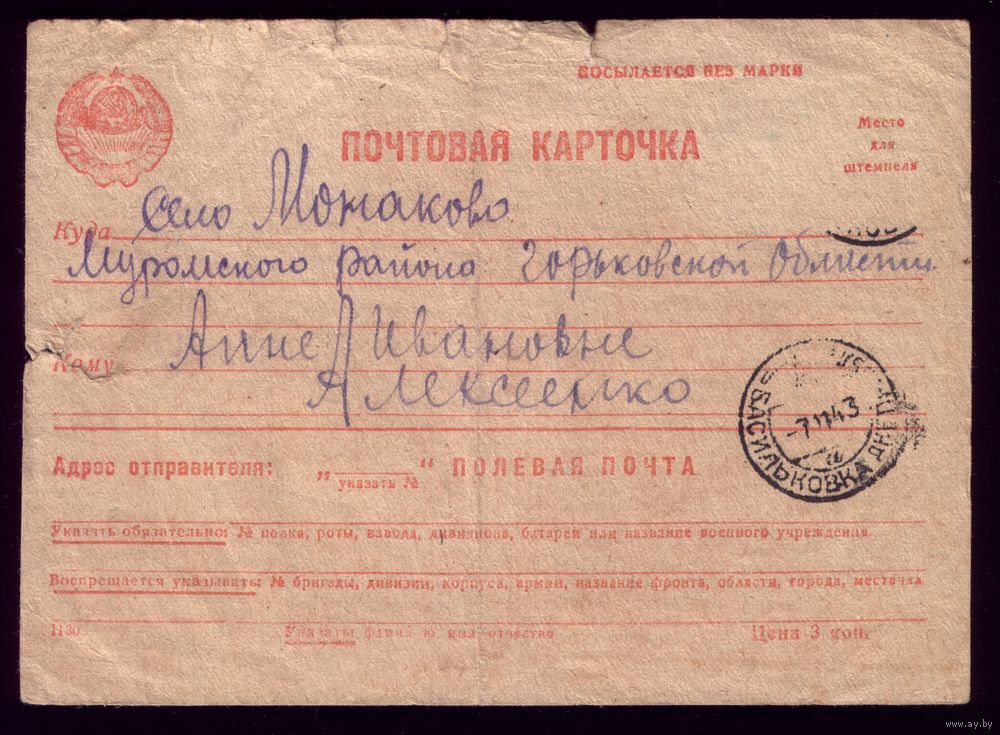 ПОСЫЛАЕТСЯ БЕЗ МАРКИ
ПОЧТОВАЯ КАРТОЧКА
Место
для
штемпеля
Куда село Монаково
Муромского района Горьковской Области
Кому Анне Ивановне
Алексеенко
ВАСИЛЬКОВКА ДНЕП
-7 11 43
а
Адрес отправителя: „ “ ПОЛЕВАЯ ПОЧТА
указать №
Указать обязательно: № полка, роты, взвода, дивизиона, батареи или название военного учреждения
Воспрещается указывать: № бригады, дивизии, корпуса, армии, название фронта, области, города, местечка
Указать фамилию имя отчество
Цена 3 коп.
www.ay.by